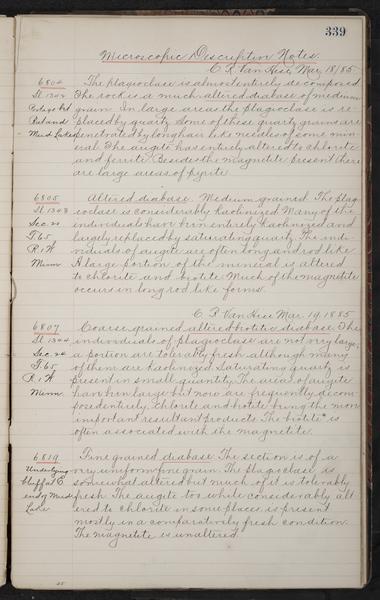 339
Microscopic Descriptive Notes.
C. R. Van Hise, Mar, 18/85
6804 The plagioclase is almost entirely decomposed
Sl. 1302 The rock is a much altered diabase of medium
grain. In large areas the plagioclase is re-
placed by quartz. Some of these quartz grains are
Mud Lakes penetrated by long hair like needles of some min-
eral. The augite has entirely altered to chlorite
and ferrite. Besides the magnetite present there
are large areas of pyrite.
6805 Altered diabase. Medium grained. The plag-
Sl. 1303 ioclase is considerably kaolinized. Many of the
Sec. 24 individuals have been entirely kaolinized and
T. 65 largely replaced by saturating quartz. The indi-
R. 1 W. viduals of augite are often long and rod like.
Minn A large portion of the mineral is altered
to chlorite and biotite. Much of the magnetite
occurs in long rod like forms.
C. R. Van Hise Mar. 19. 1885
6807 Coarse grained altered biotitic diabase. The
Sl. 1304 individuals of plagioclase are not very large;
Sec. 24 a portion are tolerably fresh although many
T. 65 of them are kaolinized. Saturating quartz is
R. 1 W. present in small quantity. The areas of augite
Minn. have been large but now are frequently decom-
posed entirely, chlorite and biotite being the more
important resultant products. The biotite is
often associated with the magnetite.
6819 Fine grained diabase. The section is of a
Underlying very uniform fine grain. The plagioclase is
bluff at E. somewhat altered but much of it is tolerably
end of Mud fresh. The augite too while considerably alt
Lake ered to chlorite in some places is present
mostly in a comparatively fresh condition.
The magnetite is unaltered.